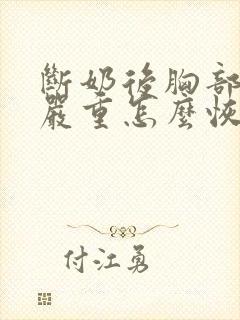 斷奶後胸部
嚴重怎麼恢
付江勇